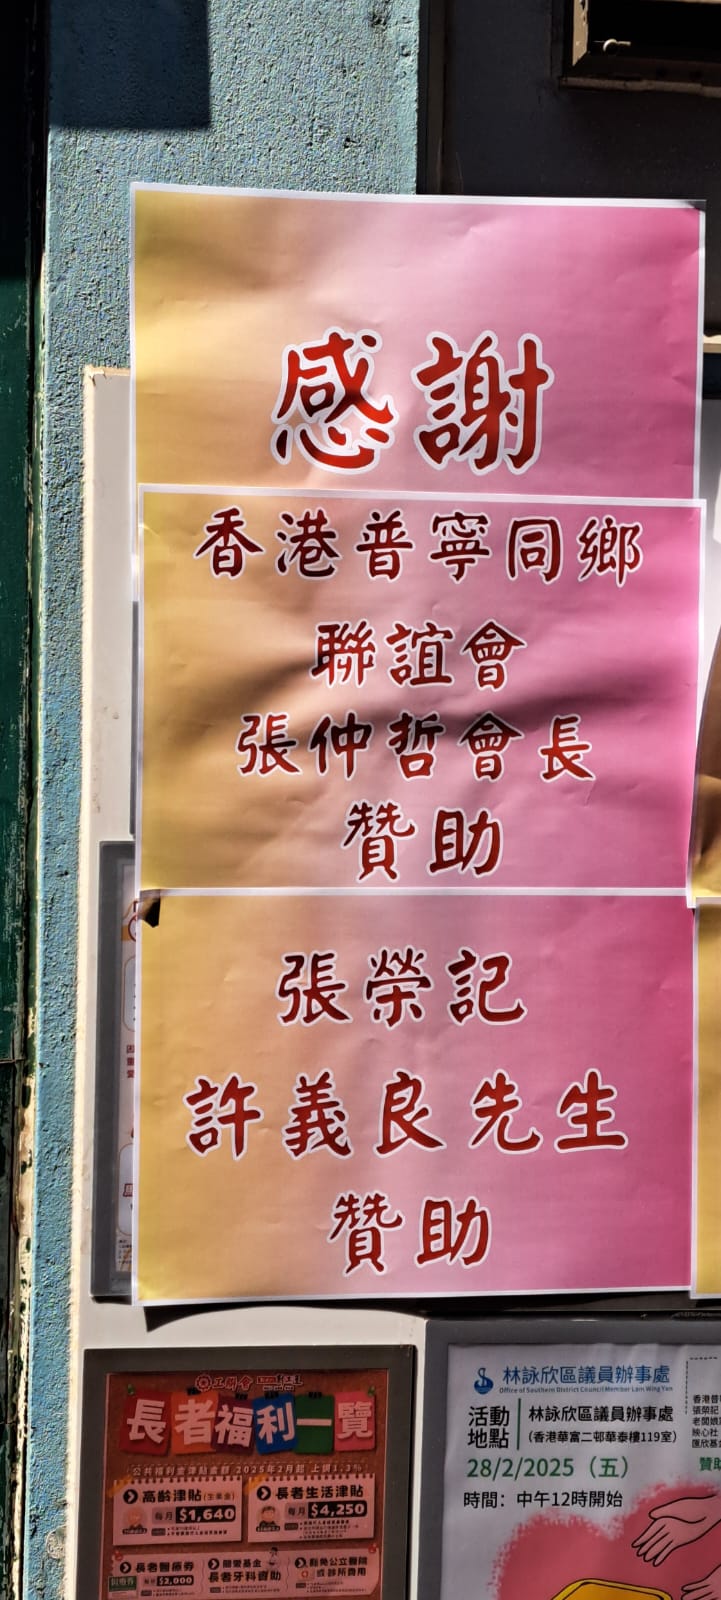 感謝
香港普寧同鄉
聯誼會
張仲哲會長
贊助
張榮記
許義良先生
贊助
工聯會
長者福利一覽
公共福利金津貼金額 2025年2月起 上調1.3%
高齡津貼(生果金)
每月 $1,640
長者生活津貼
每月 $4,250
長者醫療券
$2,000
關愛基金
長者牙科資助
豁免公立醫院
或診所費用
林詠欣區議員辦事處
Office of Southern District Council Member Lam Wing Yan
活動
地點
林詠欣區議員辦事處
(香港華富二邨華泰樓119室)
28/2/2025 (五)
時間：中午12時開始
香港普
張榮記
老闆娘
映心社
匯欣基
贊助